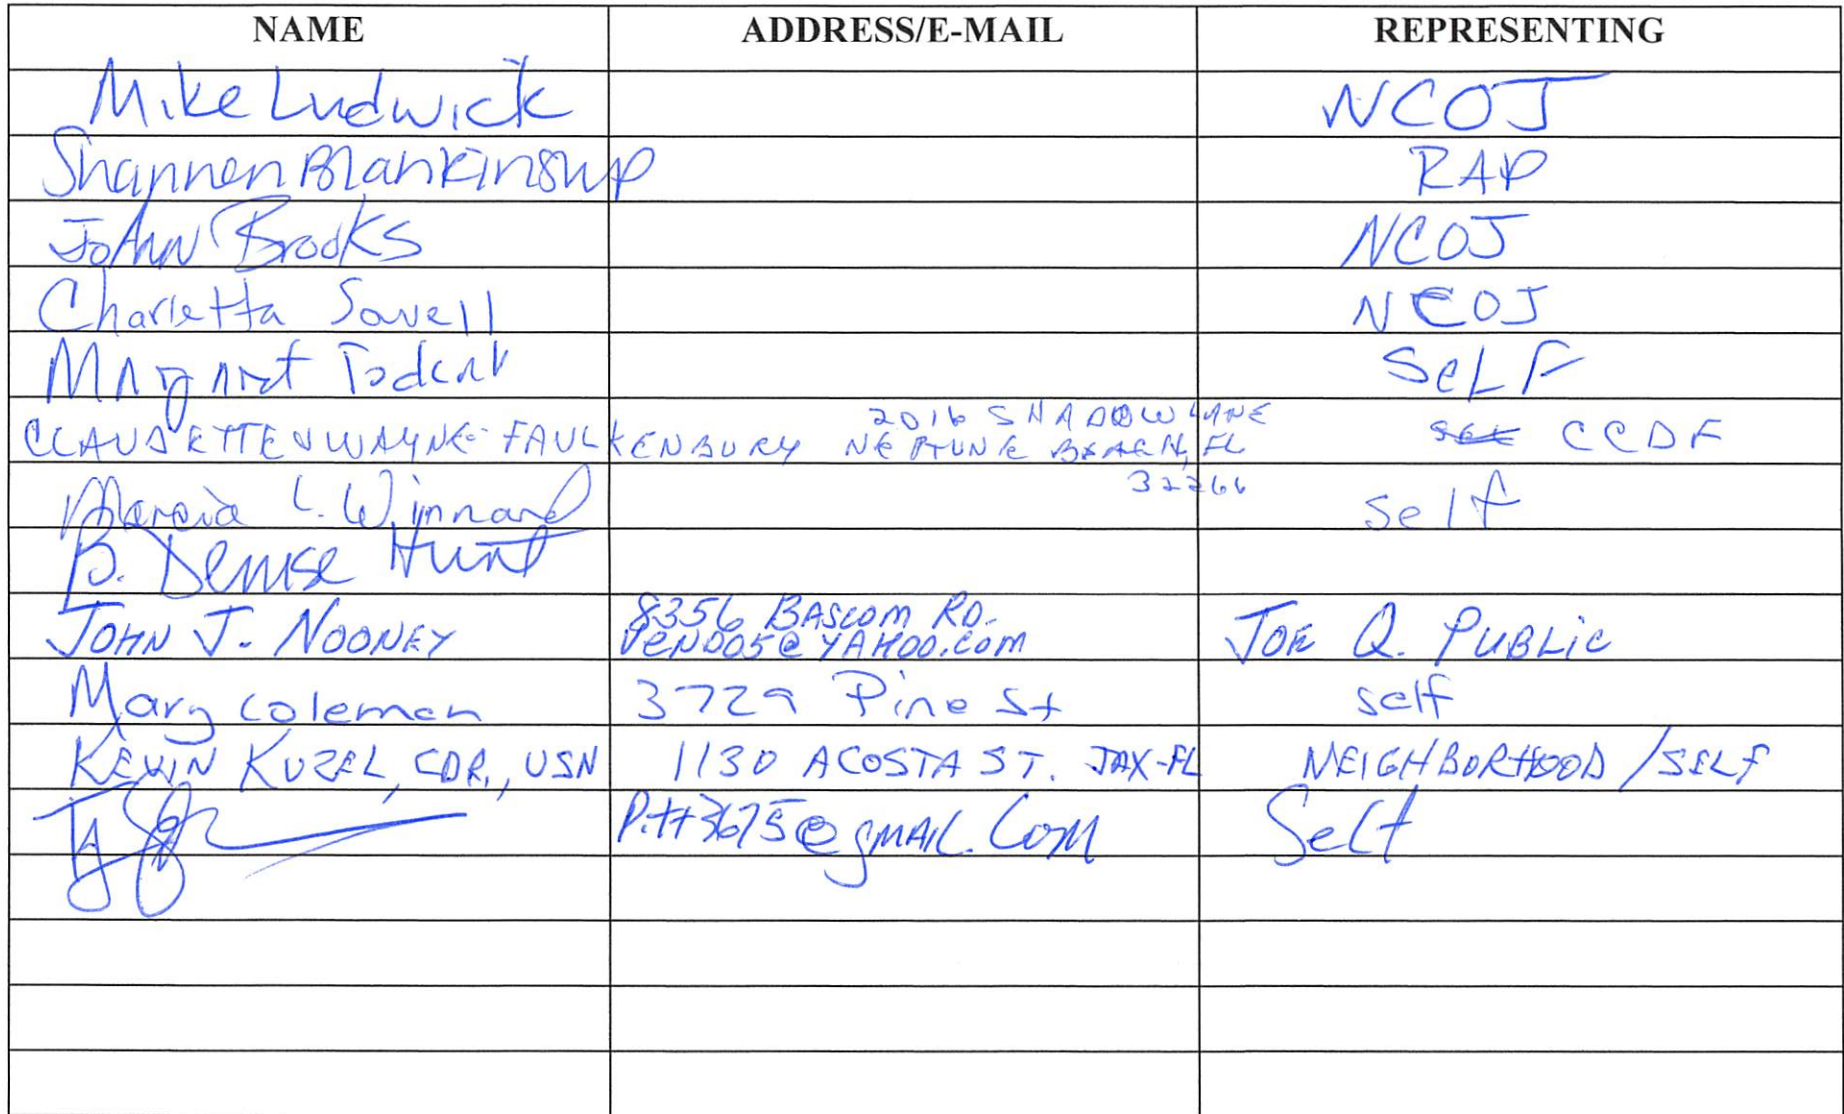 NAME ADDRESS/E-MAIL REPRESENTING
Mike Ludwick NCOJ
Shannon Blankinship RAP
JoAnn Brooks NCOJ
Charletta Sowell NCOJ
Margaret SELF
2016 SHADOW LANE
CLAUDETTE & WAYNE FAULKENBURY NEPTUNE BEACH, FL CCDF
32266
Marcia L. Winnard Self
B. Denise Hunt
8356 BASCOM RD.
JOHN J. NOONEY VEN005@YAHOO.COM JOE Q. PUBLIC
Mary Coleman 3729 Pine St self
KEVIN KUZEL, CDR., USN 1130 ACOSTA ST. JAX-FL NEIGHBORHOOD/SELF
Pitt3675@gmail.com Self